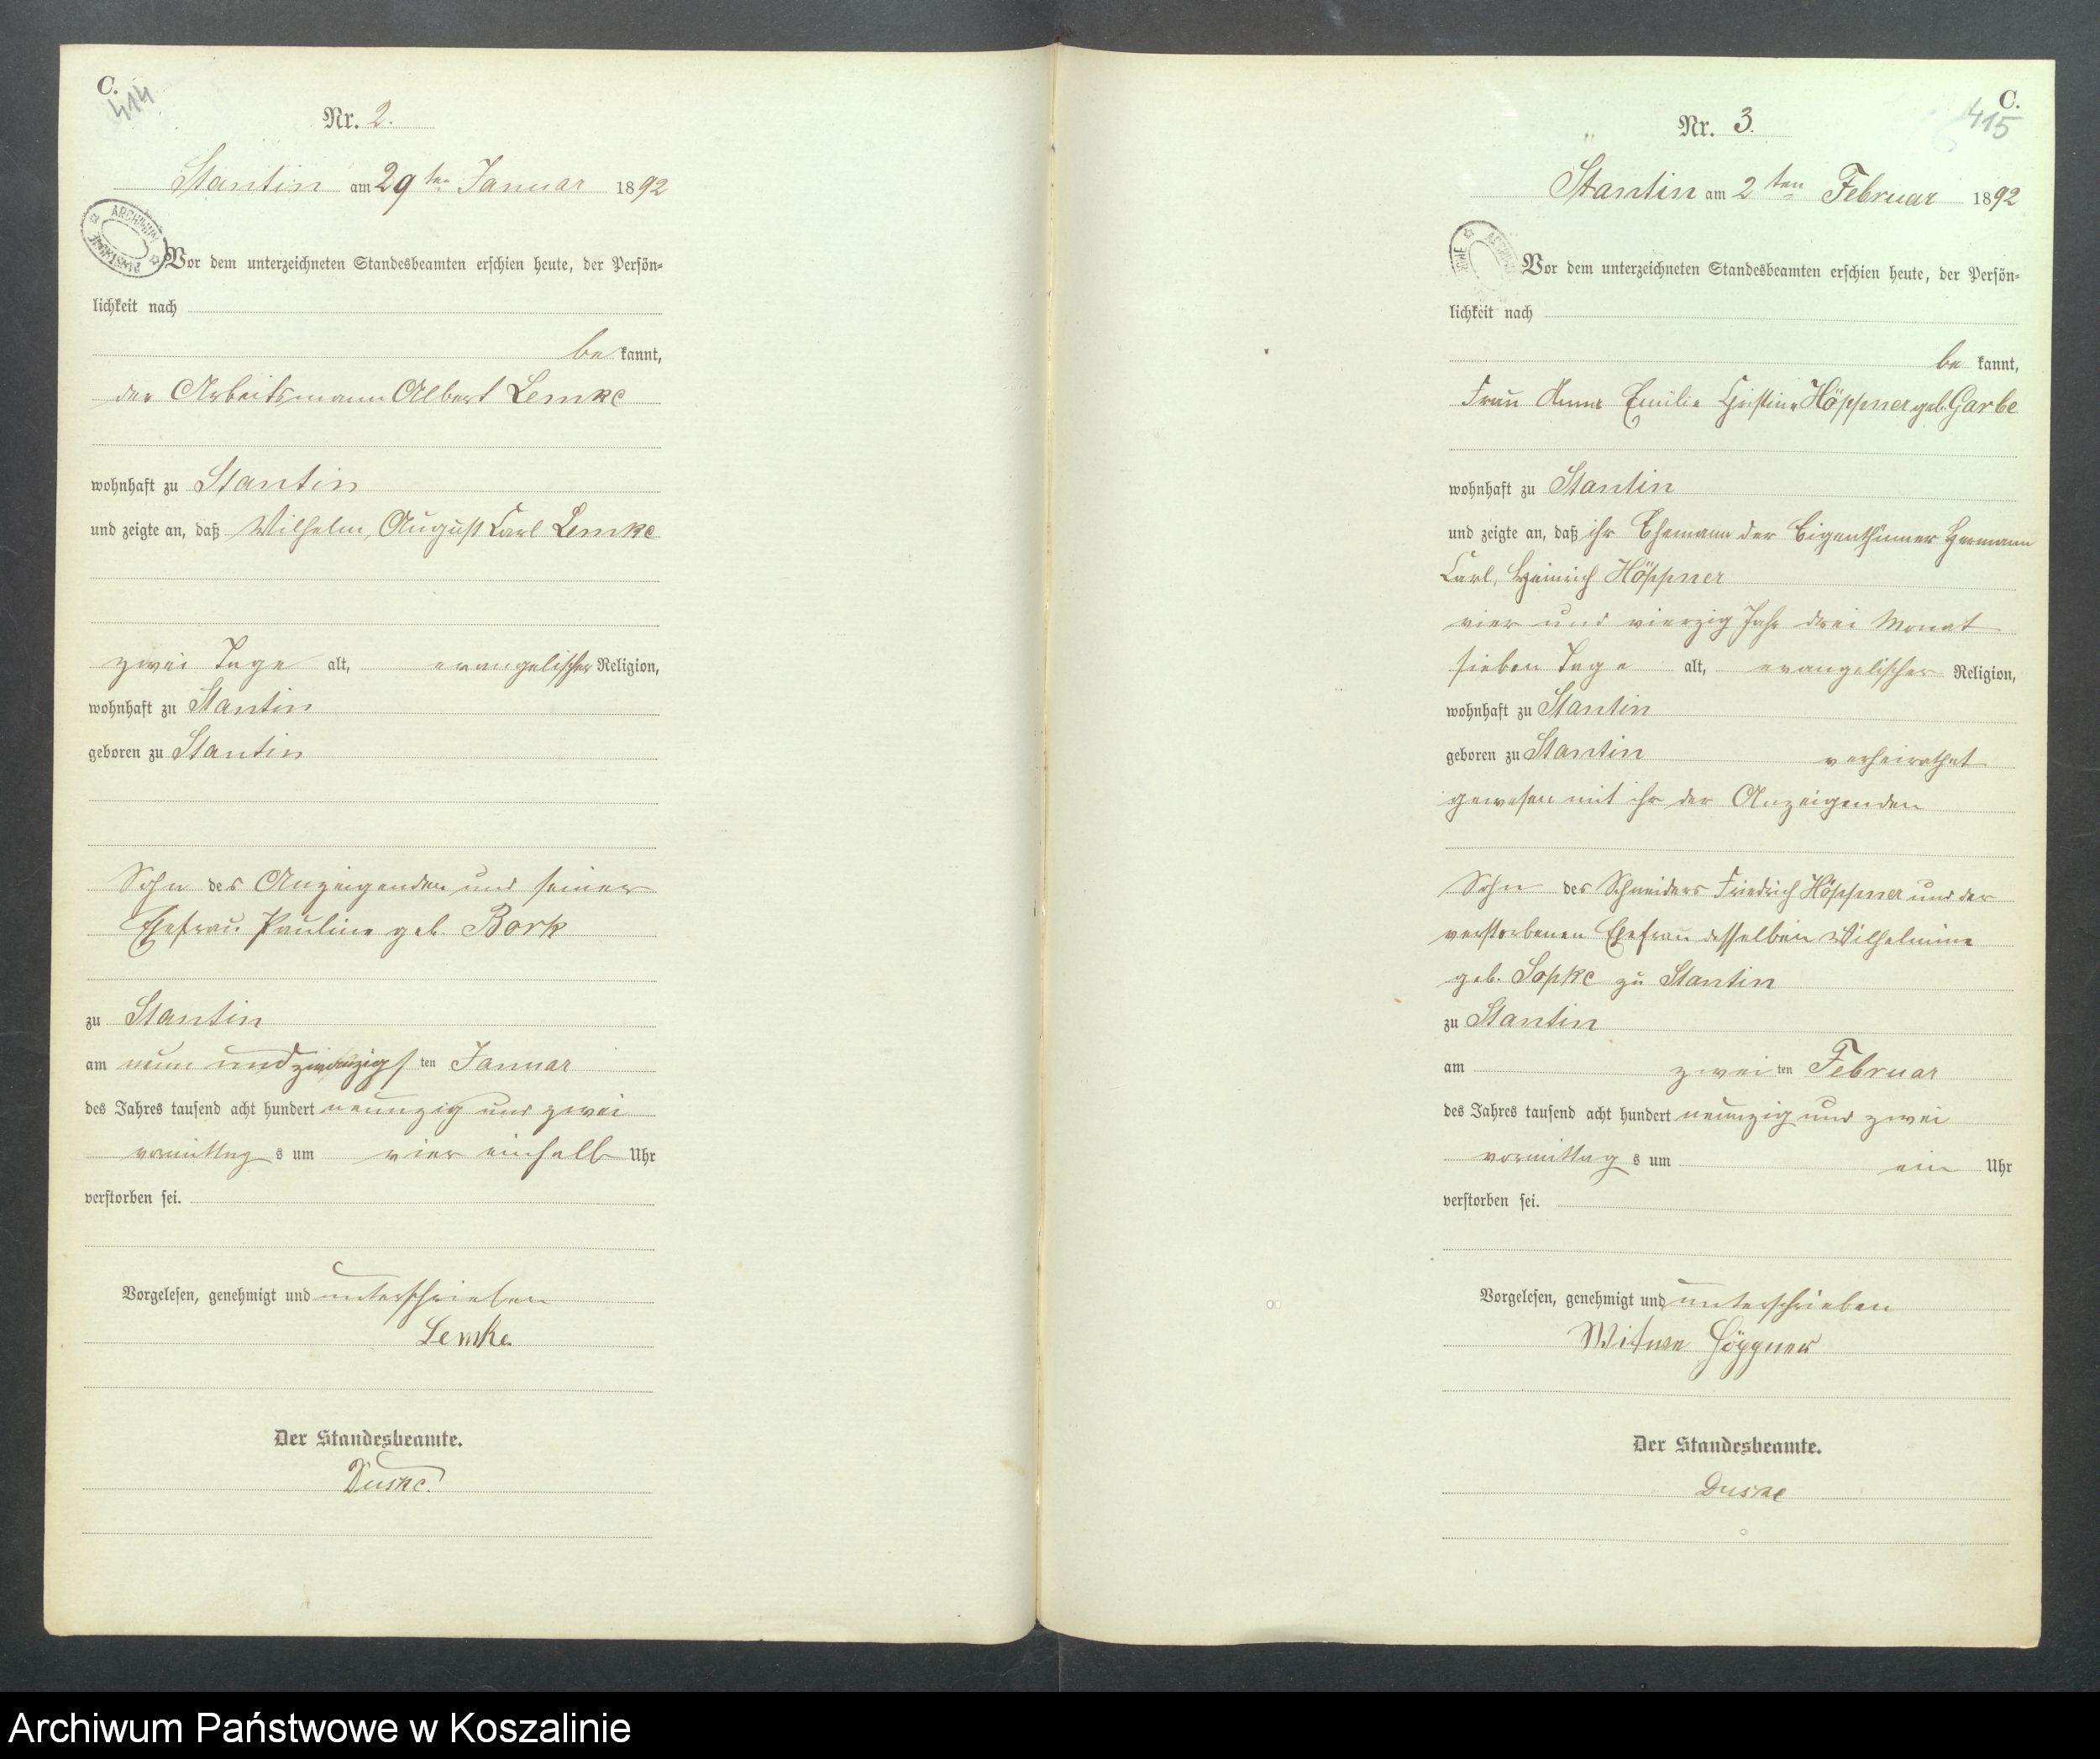 C.
414
Nr. 2.
Stantin am 29ten Januar 1892
ARCHIWUM
Vor dem unterzeichneten Standesbeamten erschien heute, der Persön-
lichkeit nach
be kannt,
der Arbeitsmann Albert Lemke
wohnhaft zu Stantin
und zeigte an, daß Wilhelm, August Carl Lemke
zwei Tage alt, evangelischer Religion,
wohnhaft zu Stantin
geboren zu Stantin
Sohn des Anzeigenden und seiner
Ehefrau Pauline geb. Bork
zu Stantin
am neun und zwanzigsten Januar
des Jahres tausend acht hundert neunzig und zwei
vormittag s um vier einhalb Uhr
verstorben sei.
Vorgelesen, genehmigt und unterschrieben
Lemke.
Der Standesbeamte.
Duske.
C.
415
Nr. 3.
Stantin am 2ten Februar 1892
Vor dem unterzeichneten Standesbeamten erschien heute, der Persön-
lichkeit nach
be kannt,
Frau Anna Emilie Christine Höppner geb. Garbe
wohnhaft zu Stantin
und zeigte an, daß ihr Ehemann der Eigenthümer Hermann
Carl, Heinrich Höppner
vier und vierzig Jahr drei Monat
sieben Tage alt, evangelischer Religion,
wohnhaft zu Stantin
geboren zu Stantin verheirathet
gewesen mit ihr der Anzeigenden
Sohn des Schneiders Friedrich Höppner und der
verstorbenen Ehefrau desselben Wilhelmine
geb. Sopke zu Stantin
zu Stantin
am zweiten Februar
des Jahres tausend acht hundert neunzig und zwei
vormittag s um ein Uhr
verstorben sei.
Vorgelesen, genehmigt und unterschrieben
Witwe Höppner
Der Standesbeamte.
Duske
Archiwum Państwowe w Koszalinie